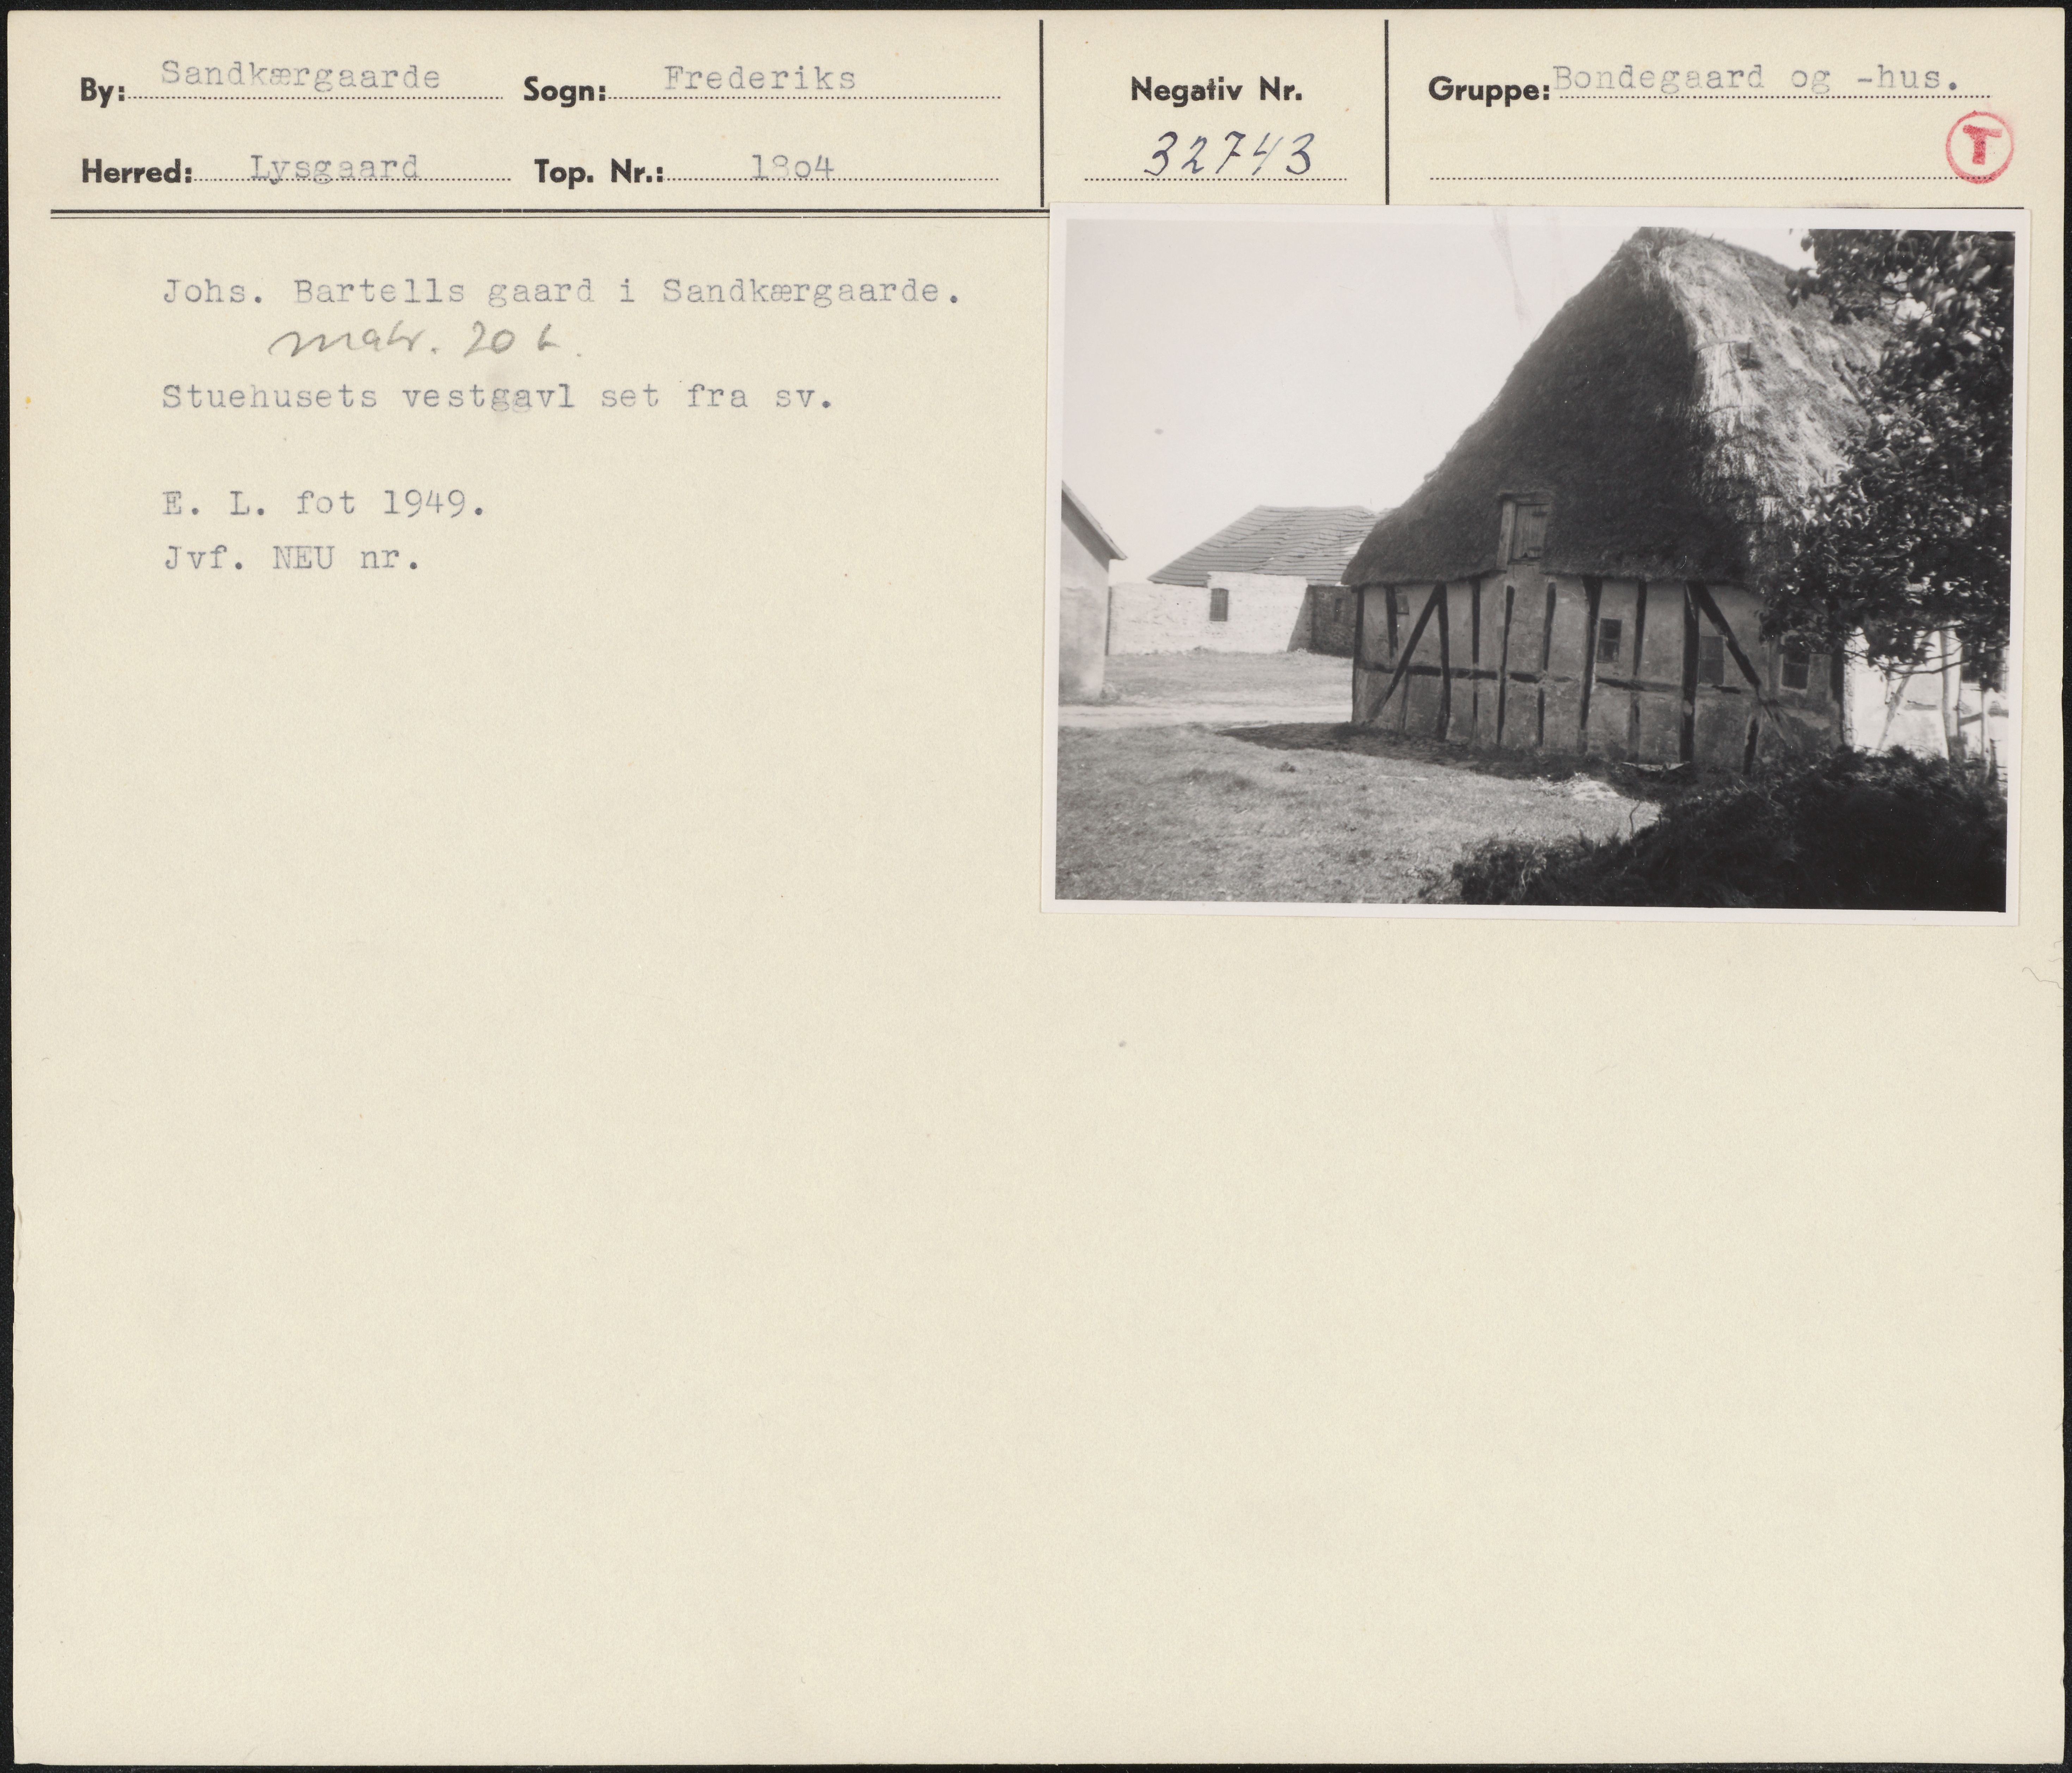 By: Sandkærgaarde Sogn: Frederiks Negativ Nr. Gruppe: Bondegaard og -hus.
Herred: Lysgaard Top. Nr.: 18o4 32743 T
Johs. Bartells gaard i Sandkærgaarde.
matr. 20
Stuehusets vestgavl set fra sv.
E. L. fot 1949.
Jvf. NEU nr.